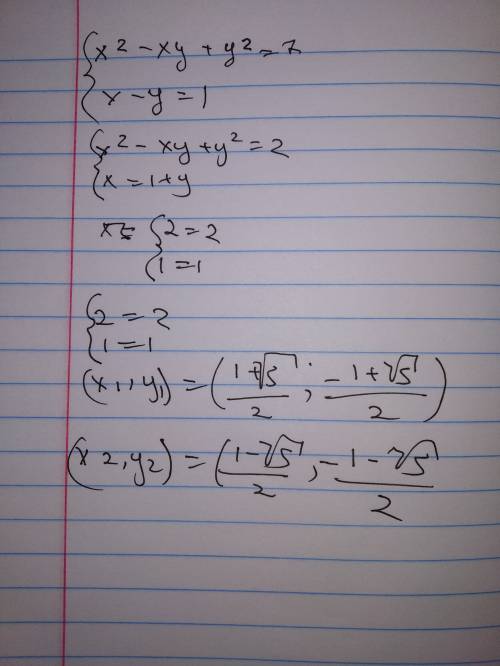 {x² - xy + y² = 7
{x - y = 1
{x² - xy + y² = 2
{x = 1 + y
{2 = 2
{1 = 1
{2 = 2
{1 = 1
(x1, y1) = ((1+√5)/2 ; (-1+√5)/2)
(x2, y2) = ((1-√5)/2 ; (-1-√5)/2